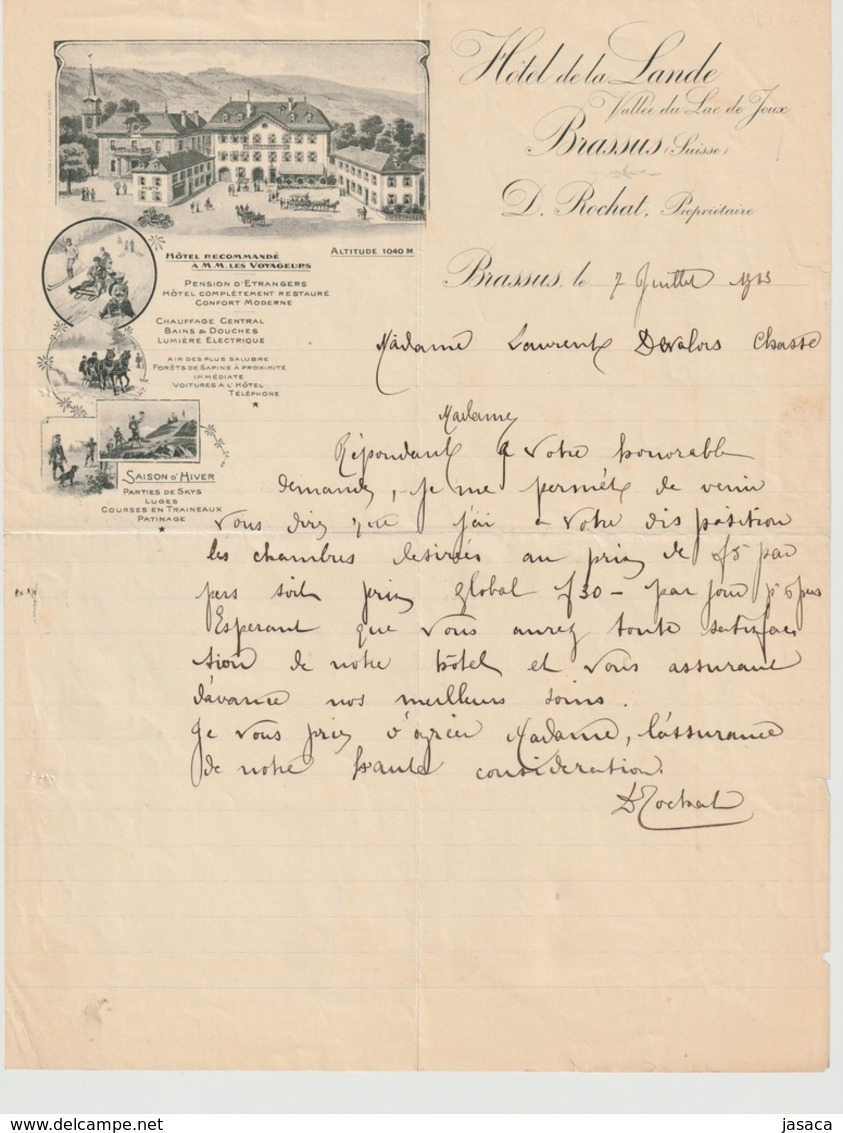 Hôtel de la Lande
Vallée du Lac de Joux
Brassus (Suisse)
D. Rochat, Propriétaire
Altitude 1040 M
Hôtel recommandé
a M.M. les Voyageurs
Pension d'Etrangers
Hôtel complètement restauré
Confort Moderne
Chauffage Central
Bains & Douches
Lumière Electrique
Air des plus salubre
Forêts de Sapins à proximité
immédiate
Voitures a l'Hôtel
Téléphone
Saison d'Hiver
Parties de Skys
Luges
Courses en Traineaux
Patinage
Brassus, le 7 Juillet
Madame Laurent Chasse
Madame
Répondant a votre honorable
demande, je me permèt de venir
vous dire que j'ai a votre disposition
les chambres desirées au prix de f5 par
pers soit prix global f30 – par jour p 6 pers
Esperant que vous aurez toute satisfac
tion de notre hôtel et vous assurant
d'avance nos meilleurs soins.
Je vous prie d'agréer Madame, l'assurance
de notre haute consideration.
D Rochat
jasaca